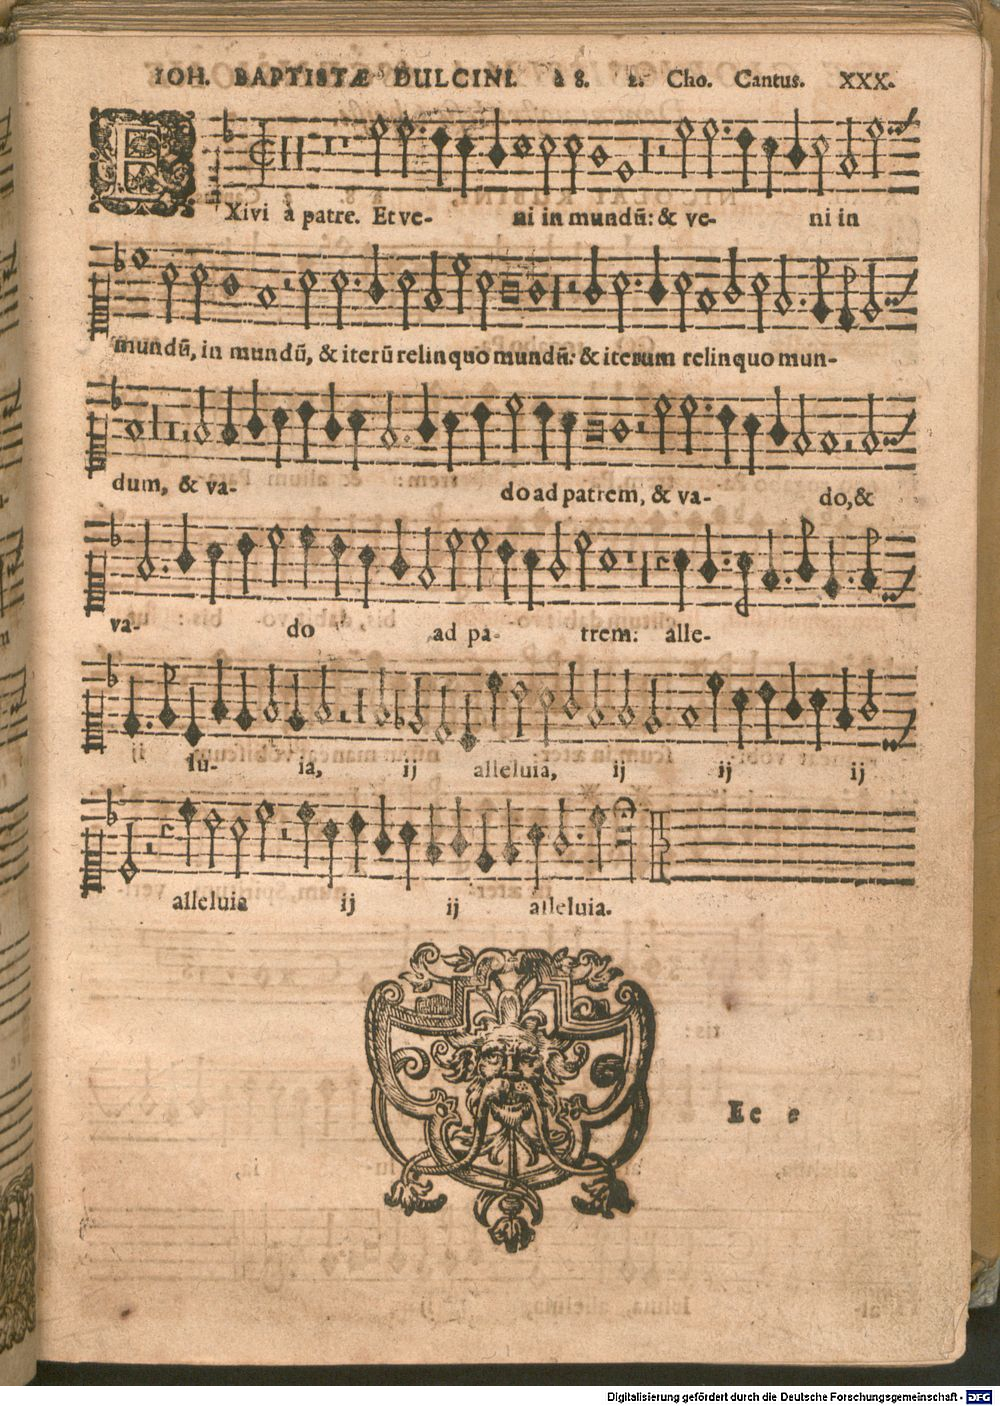 IOH. BAPTISTÆ DULCINI. à 8. 2. Cho. Cantus. XXX.
EXivi à patre. Et ve- ni in mundũ: & ve- ni in
mundũ, in mundũ, & iterũ relinquo mundũ: & iterum relinquo mun-
dum, & va- do ad patrem, & va- do, &
va- do ad pa- trem: alle-
lu- ia, ij alleluia, ij ij ij
alleluia ij ij alleluia.
Ee e
Digitalisierung gefördert durch die Deutsche Forschungsgemeinschaft - DFG